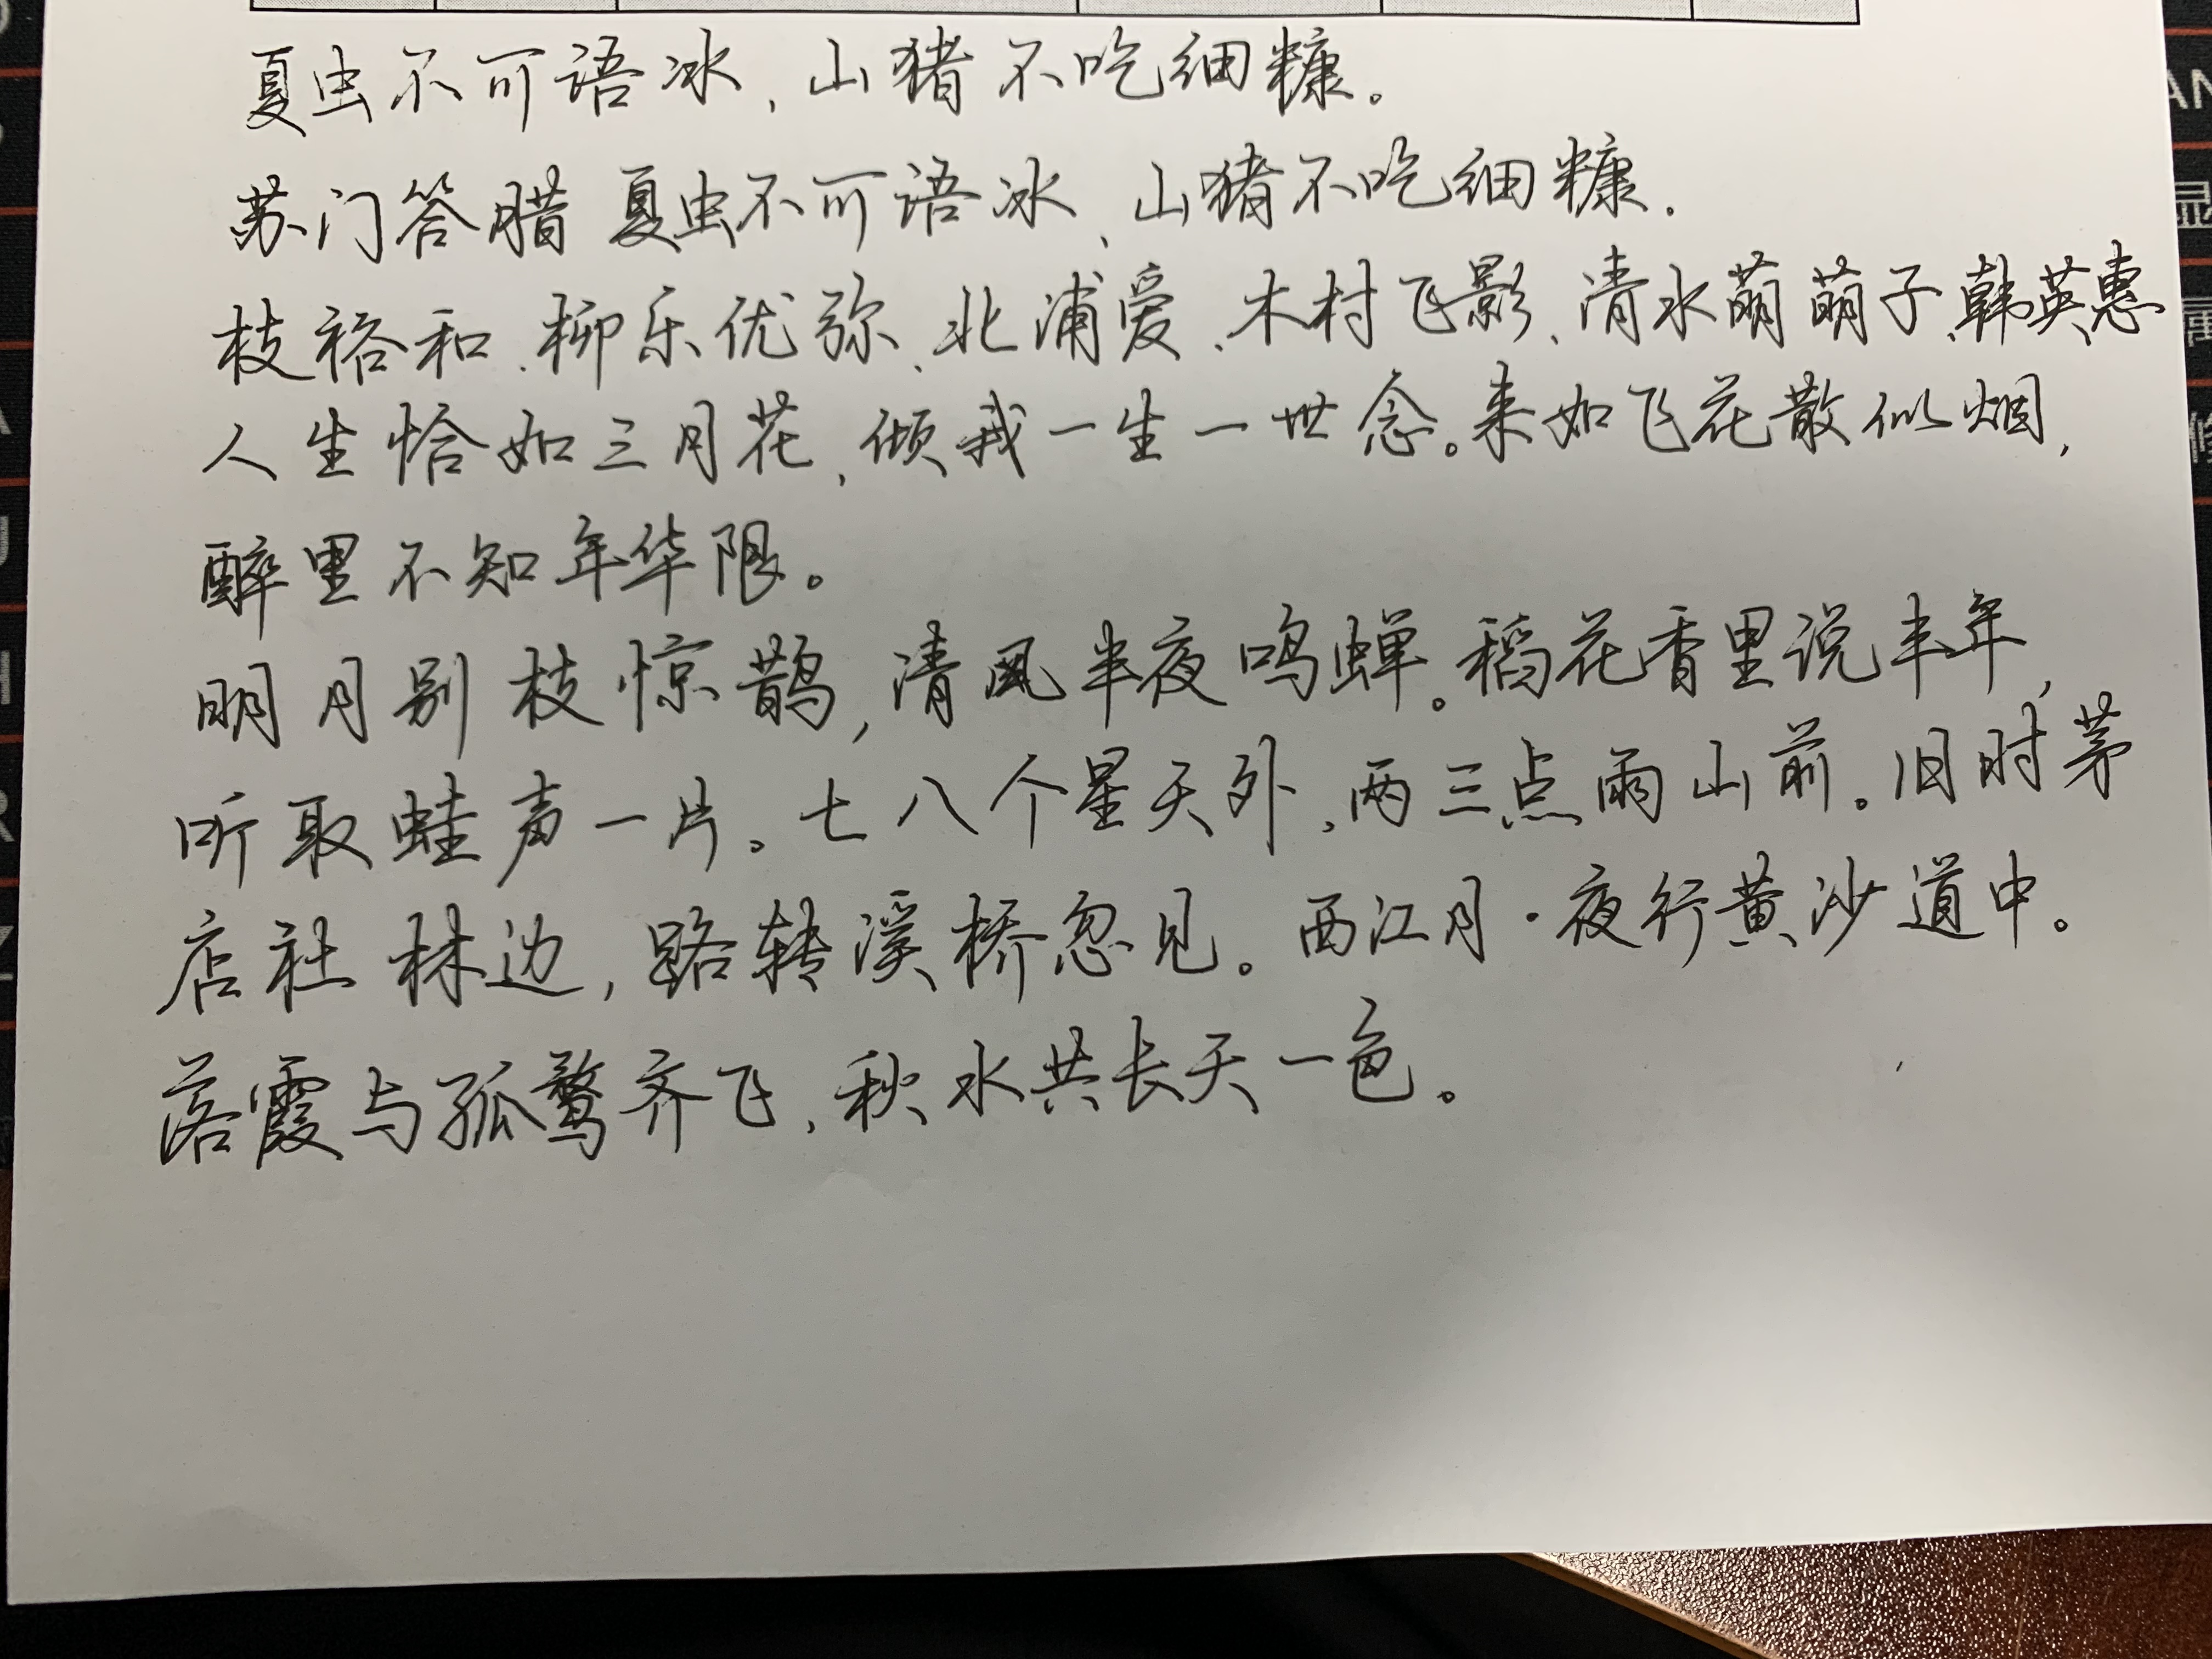 夏虫不可语冰、山猪不吃细糠。
苏门答腊 夏虫不可语冰、山猪不吃细糠.
枝裕和、柳乐优弥、北浦爱、木村飞影、清水萌萌子、韩英惠
人生恰如三月花、倾我一生一世念。来如飞花散似烟，
醉里不知年华限。
明月别枝惊鹊，清风半夜鸣蝉。稻花香里说丰年
听取蛙声一片。七八个星天外、两三点雨山前。旧时茅
店社林边，路转溪桥忽见。西江月·夜行黄沙道中。
落霞与孤鹜齐飞、秋水共长天一色。